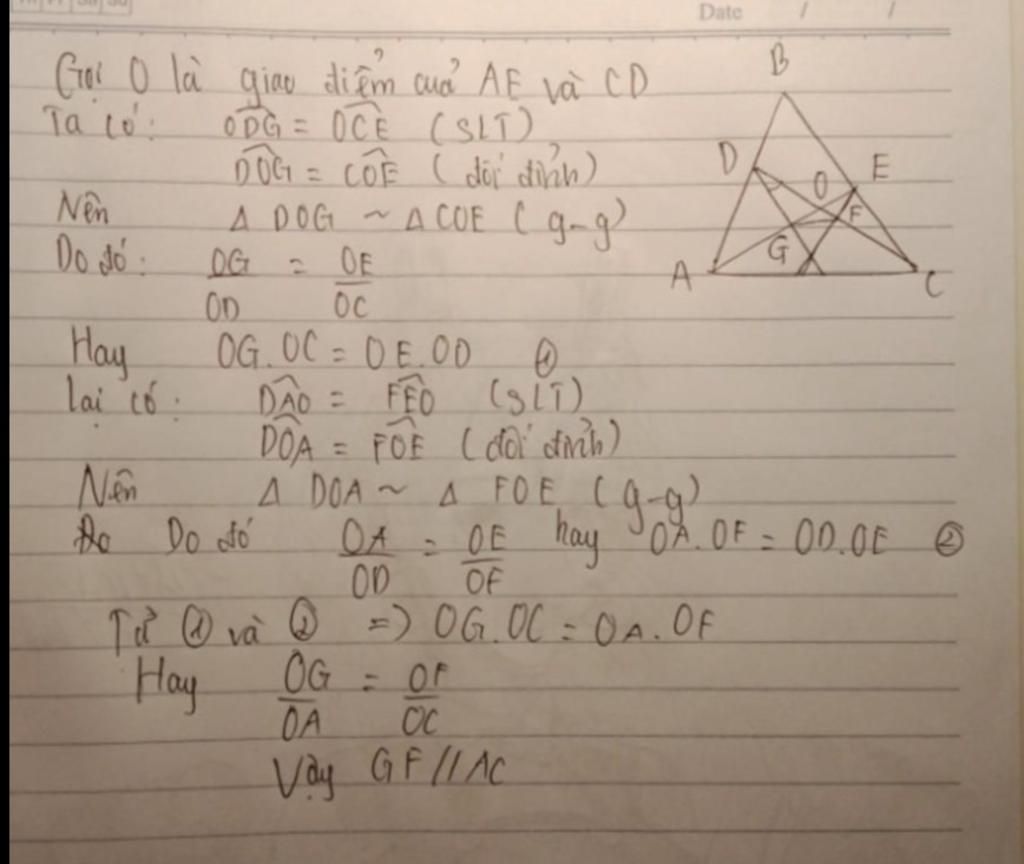 Date / /
Gọi O là giao điểm cuả AE và CD
Ta có: ODG = OCE (SLT)
DOG = COE (đối đỉnh)
Nên Δ DOG ~ Δ COE (g-g)
Do đó: OG/OD = OE/OC
Hay OG.OC = OE.OD ①
lại có: DAO = FEO (SLT)
DOA = FOE (đối đỉnh)
Nên Δ DOA ~ Δ FOE (g-g)
Do Do đó OA/OD = OE/OF hay OA.OF = OD.OE ②
Từ ① và ② => OG.OC = OA.OF
Hay OG/OA = OF/OC
Vậy GF // AC
B
D
O
E
F
G
A
C